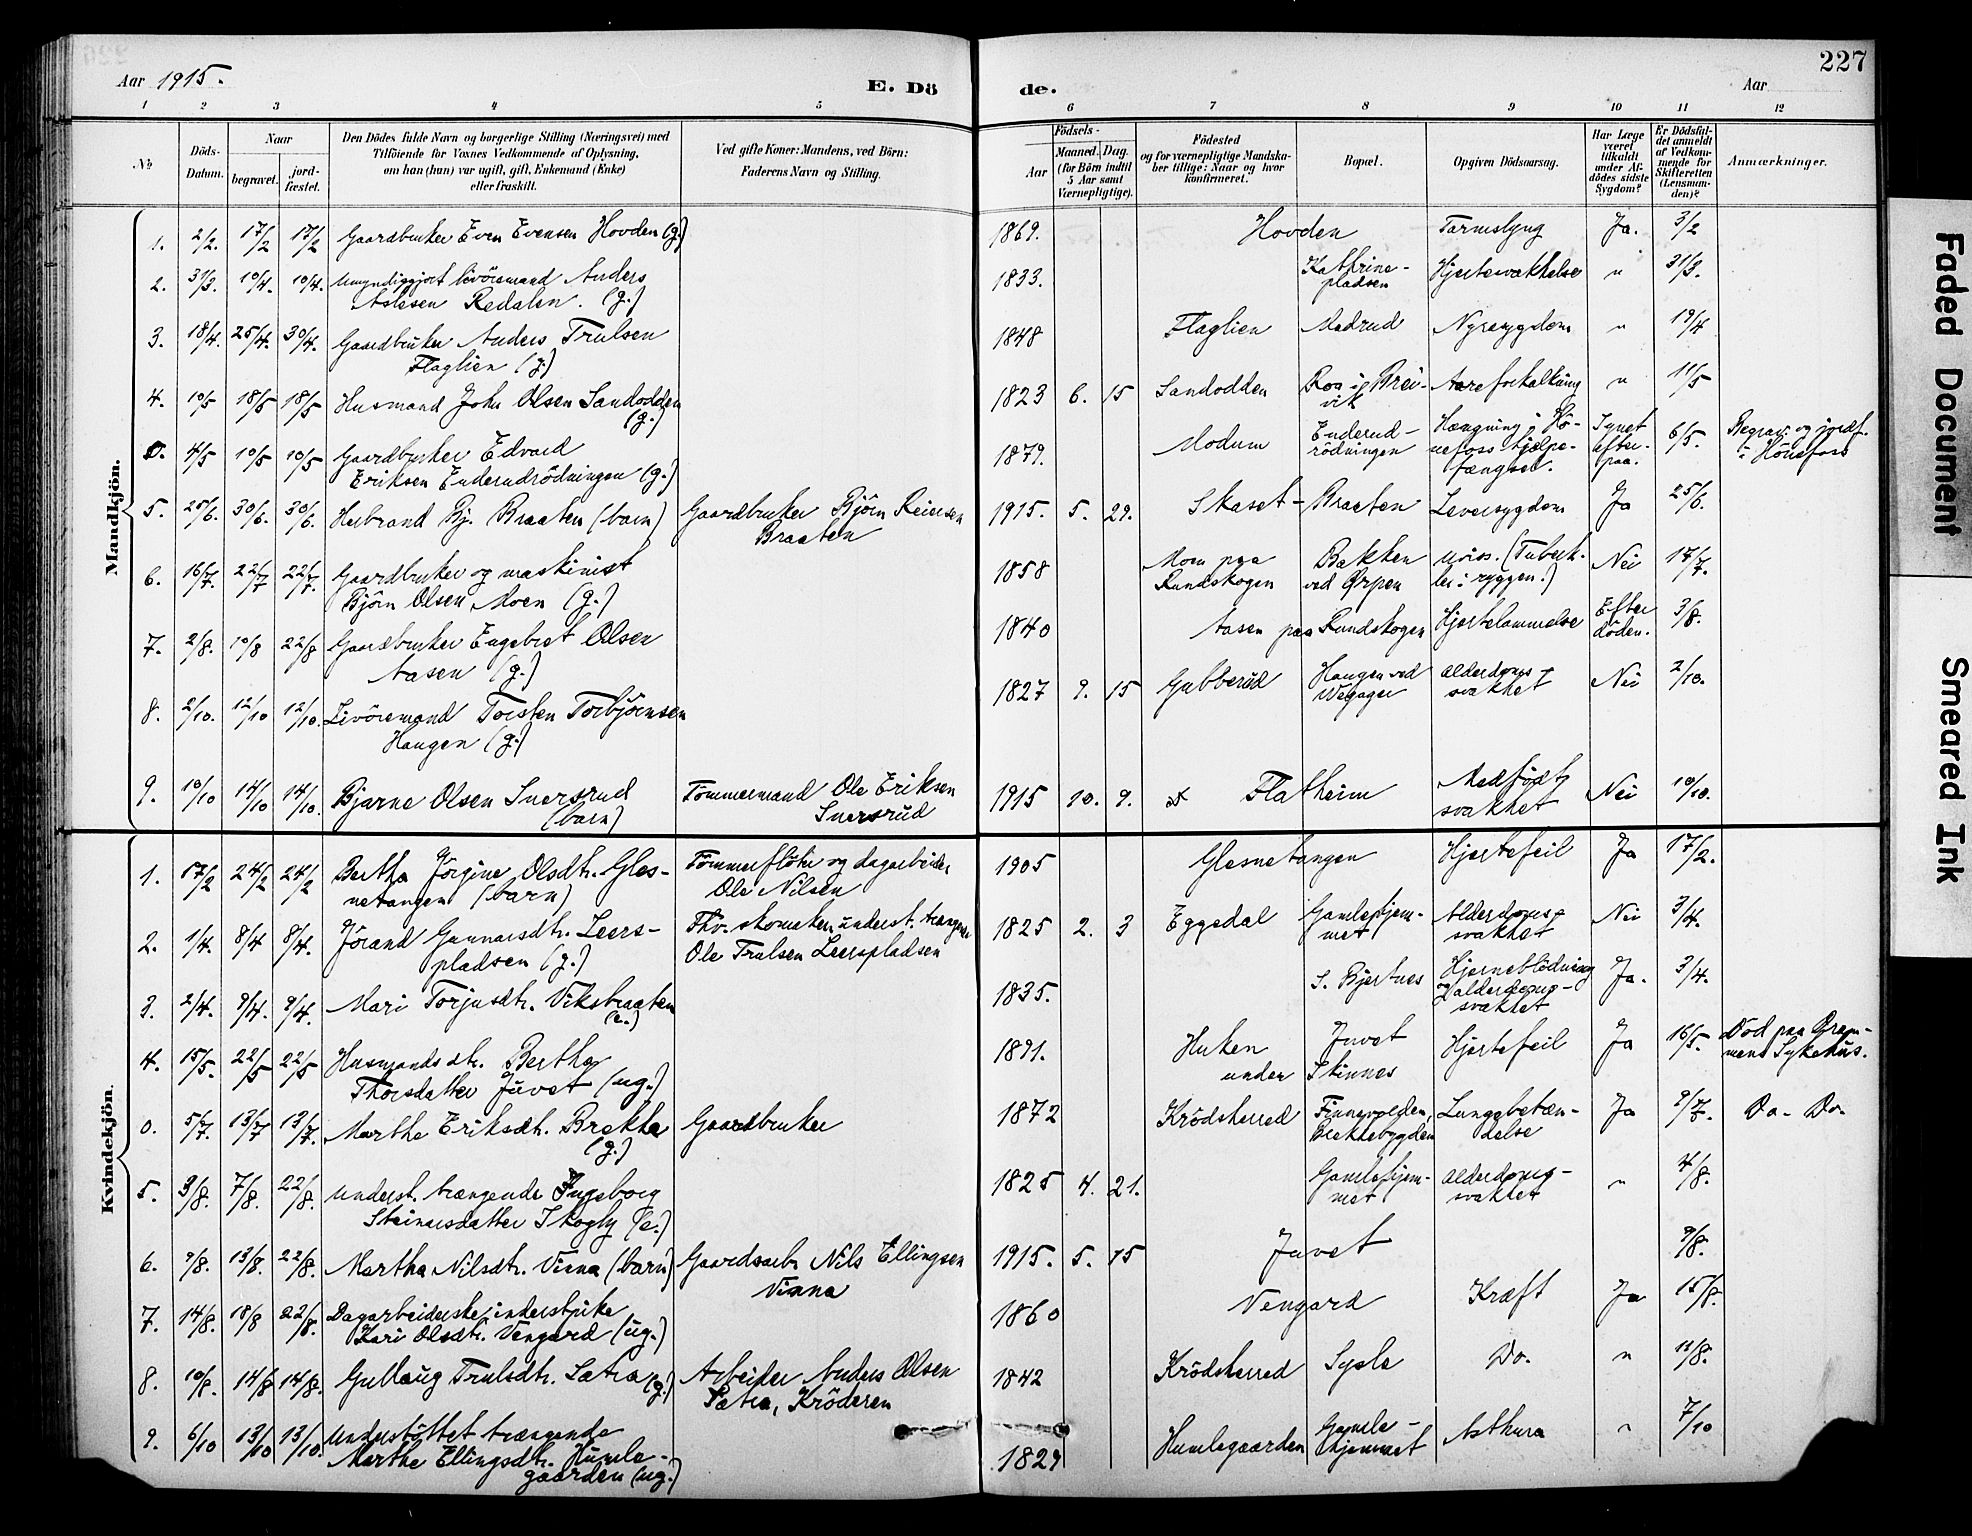 227
Aar 1915.
E. Dö de.
Aar
1 2 3 4 5 6 7 8 9 10 11 12
No
Döds-Datum.
Naar
begravet.
jord-fæstet.
Den Dödes fulde Navn og borgerlige Stilling (Næringsvei) med
Tilföiende for Voxnes Vedkommende af Oplysning,
om han (hun) var ugift, gift, Enkemand (Enke)
eller fraskilt.
Ved gifte Koner: Mandens, ved Börn:
Faderens Navn og Stilling.
Födsels-
Aar
Maaned. Dag.
(for Börn indtil
5 Aar samt
Værnepligtige).
Födested
og for værnepligtige Mandska-
ber tillige: Naar og hvor
konfirmeret.
Bopæl.
Opgiven Dödsaarsag.
Har Læge
været
tilkaldt
under Af-
dödes sidste
Sygdom?
Er Dödsfal-
det anmeldt
af Vedkom-
mende for
Skifteretten
(Lensman-
den)?
Anmærkninger.
Mandkjön.
1. 2/2. 17/2 17/2 Gaardbruker Even Evensen Hovden (g.) 1869. Hovden Tarmslyng Ja. 3/2
2. 31/3. 10/4. 10/4. Umyndiggjort livöremand Anders
Aslesen Redalen. (g.) 1833. Kathrine-
pladsen Hjertesvakhelse " 31/3.
3. 18/4. 25/4. 30/4. Gaardbruker Anders Trulsen
Flaglien (g.) 1848 Flaglien Medrud Nyresygdom " 19/4
4. 10/5 18/5 18/5 Husmand John Olsen Sandodden
(g.) 1823 6. 15 Sandodden Roa i Brei-
vik Aareforkalkning " 11/5
0. 4/5 10/5 10/5 Gaardbruker Edvard
Eriksen Enderudrödningen (g.) 1879. Modum Enderud-
rödningen Hængning i Hö-
nefoss hjelpe-
fængsel. Synet
efter-
paa. 6/5. Begrav. og jordf.
i Hönefoss
5. 25/6. 30/6. 30/6. Herbrand Bj. Braaten (barn) Gaardbruker Björn Reiersen
Braaten 1915. 5. 29. Skaset- Braaten Leversygdom Ja 25/6.
6. 16/7. 22/7 22/7. Gaardbruker og maskinist
Björn Olsen Moen (g.) 1858 Moen paa
Rundskogen Bakken
ved Ørpen uviss. (Tuberk-
ler i ryggen.) Nei 17/7.
7. 2/8. 10/8 22/8 Gaardbruker Engebret Olsen
Aasen (g.) 1840 Aasen paa Rundskogen Hjertelammelse Efter
döden. 3/8.
8. 2/10. 12/10 12/10. Livöremand Torsten Torbjörnsen
Haugen (g.) 1827 9. 15 Gubberud Haugen ved
Wegager Alderdoms-
svakhet Nei 2/10.
9. 10/10 14/10 14/10. Bjarne Olsen Snersrud
(barn) Tömmermand Ole Eriksen
Snersrud 1915 10. 9. Flatheim Medfödt
svakhet Nei 10/10.
Kvindekjön.
1. 17/2 24/2 24/2 Bertha Jörgine Olsdtr. Gles-
netangen (barn) Tömmerflöter og dagarbeider
Ole Nilsen 1905 Glesnetangen Hjertefeil Ja 17/2.
2. 1/4. 8/4 8/4. Jörand Gunnarsdtr. Leers-
pladsen (g.) Fhv. skomaker, underst. trængende
Ole Trulsen Leerspladsen 1825 2. 3 Eggedal Gamlehjem-
met Alderdoms-
svakhet Nei 3/4.
3. 2/4. 9/4. 9/4. Mari Torjusdtr. Viksbraaten
(e.) 1835. S. Bjertnes Hjerneblödning
og alderdoms-
svakhet Ja. 3/4.
4. 15/5. 22/5 22/5 Husmandsdtr. Bertha
Thorsdatter Juvet (ug.) 1891. Huken
under Juvet
Skinnes Hjertefeil Ja 16/5. Död paa Dram-
mens Sykehus.
0. 5/7. 13/7 13/7. Marthe Eriksdtr. Brekke
(g.) Gaardbruker 1872 Krödsherred Finnevolden,
Brekkebygden Lungebetæn-
delse Ja 9/7. Do- Do-
5. 3/8. 7/8. 22/8. Underst. trængende Ingeborg
Steinarsdatter Skogly (e.) 1825 4. 21. Gamlehjem-
met Alderdoms-
svakhet " 4/8.
6. 9/8. 13/8. 22/8. Marthe Nilsdtr. Vinna (barn) Gaardsarb. Nils Ellingsen
Vinna 1915. 5. 15 Juvet 9/8.
7. 14/8. 18/8 22/8. Dagarbeiderske, inderstpike
Kari Olsdtr. Vengard (ug.) 1860 Vengard Kræft Ja 15/8.
8. 10/8. 14/8 14/8. Gullaug Trulsdtr. Sætra (g.) Arbeider Anders Olsen
Sætra, Kröderen 1842 Krödsherred Sysle Do. " 11/8.
9. 6/10 13/10 13/10. Understöttet trængende
Marthe Ellingsdtr. Humle-
gaarden (ug.) 1829 Humlegaarden Gamle-
hjemmet Asthma " 7/10
Faded Document
Smeared Ink